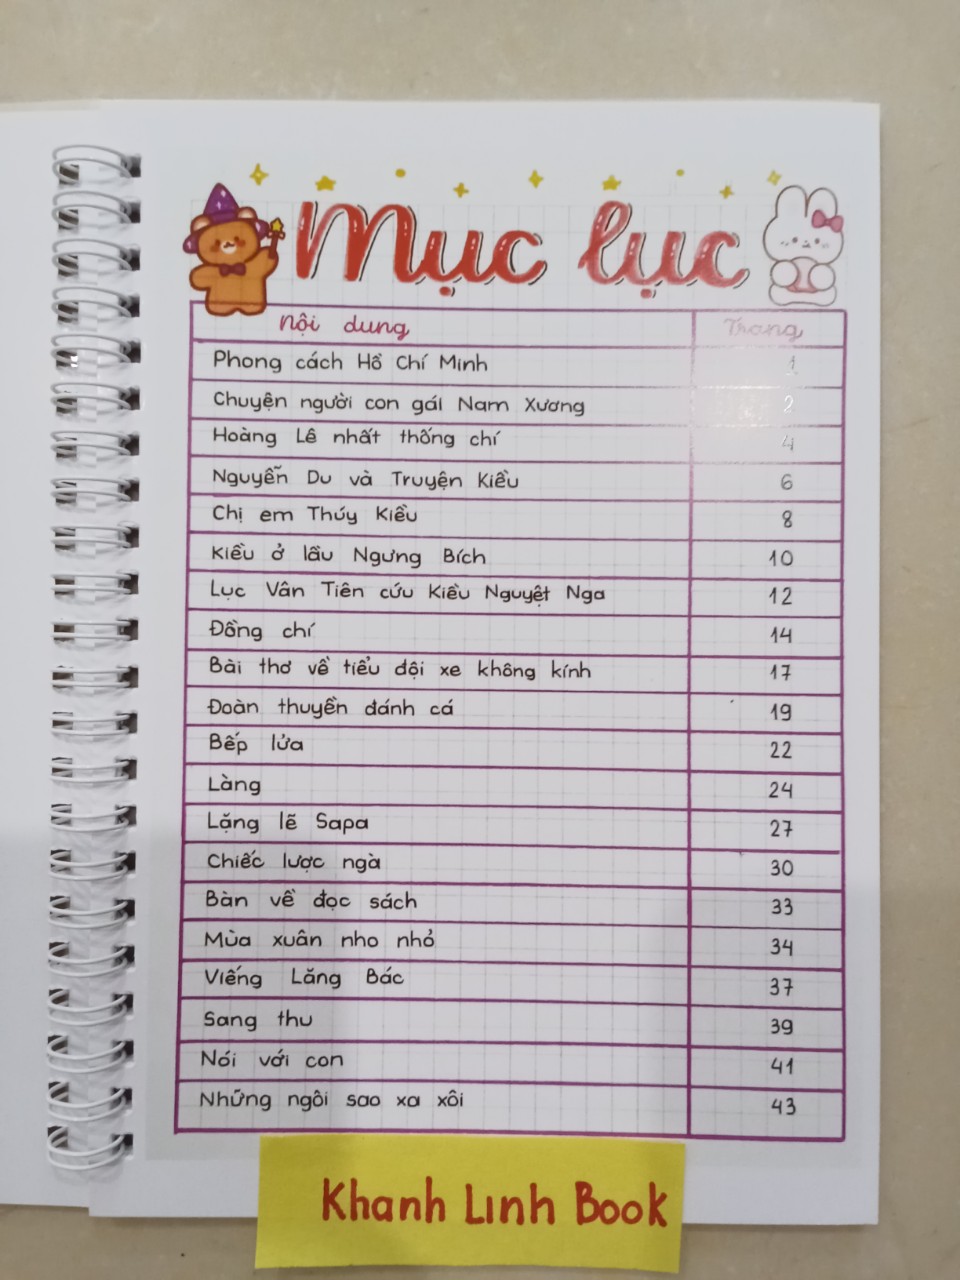 Mục lục
Nội dung Trang
Phong cách Hồ Chí Minh 1
Chuyện người con gái Nam Xương 2
Hoàng Lê nhất thống chí 4
Nguyễn Du và Truyện Kiều 6
Chị em Thúy Kiều 8
Kiều ở lầu Ngưng Bích 10
Lục Vân Tiên cứu Kiều Nguyệt Nga 12
Đồng chí 14
Bài thơ về tiểu đội xe không kính 17
Đoàn thuyền đánh cá 19
Bếp lửa 22
Làng 24
Lặng lẽ Sapa 27
Chiếc lược ngà 30
Bàn về đọc sách 33
Mùa xuân nho nhỏ 34
Viếng Lăng Bác 37
Sang thu 39
Nói với con 41
Những ngôi sao xa xôi 43
Khanh Linh Book